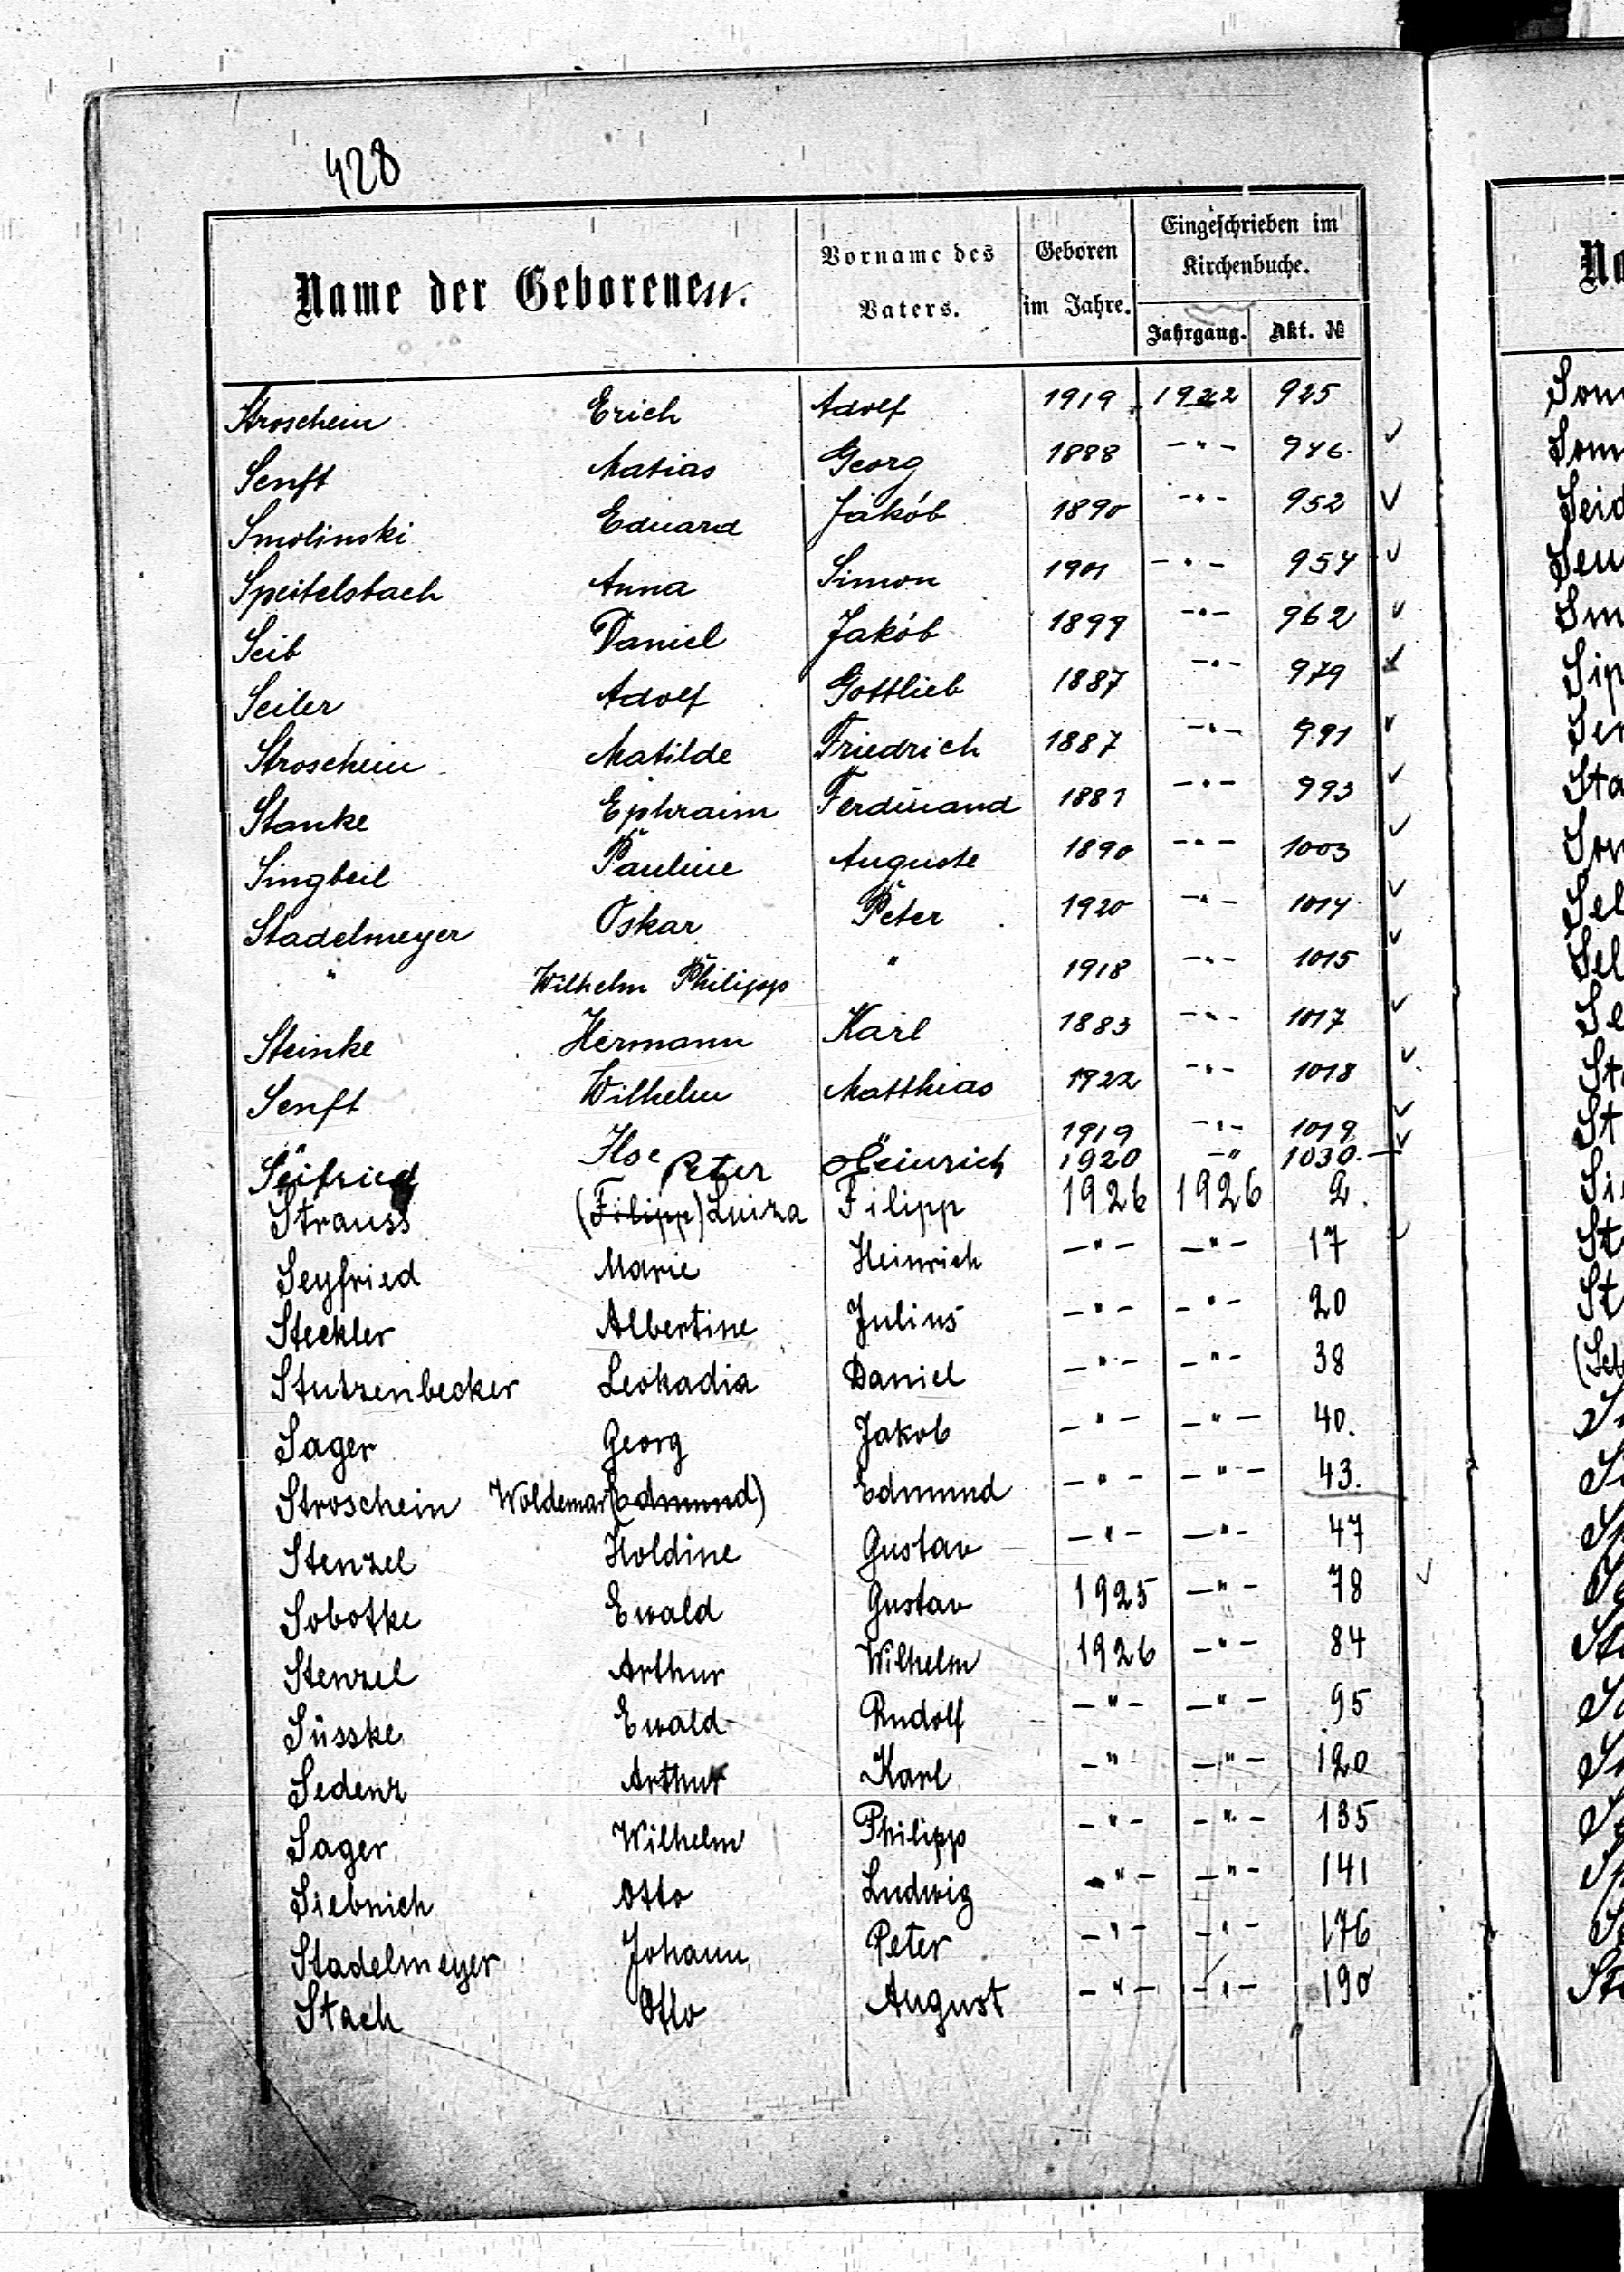 428
Name der Geborenen. Vorname des Vaters. Geboren im Jahre. Eingeschrieben im Kirchenbuche. Jahrgang. Akt. №
Stroschein Erich Adolf 1919 1922 925
Senft Matias Georg 1888 -"- 946. ✓
Smolinski Eduard Jakób 1890 -"- 952 ✓
Speitelsbach Anna Simon 1901 -"- 954 ✓
Seib Daniel Jakób 1899 -"- 962 ✓
Seiler Adolf Gottlieb 1887 -"- 979 ✓
Stroschein Matilde Friedrich 1887 -"- 991 ✓
Stanke Ephraim Ferdinand 1881 -"- 993 ✓
Singbeil Pauline Auguste 1890 -"- 1003 ✓
Stadelmeyer Oskar Peter 1920 -"- 1014 ✓
" Wilhelm Philipp " 1918 -"- 1015 ✓
Steinke Hermann Karl 1883 -"- 1017 ✓
Senft Wilhelm Matthias 1922 -"- 1018 ✓
Ilse 1919 -"- 1019 ✓
Seifried Peter Heinrich 1920 -" 1030. ✓
Strauss (Filipp) Luiza Filipp 1926 1926 2.
Seyfried Marie Heinrich -"- -"- 17 ✓
Steckler Albertine Julius -"- -"- 20
Stutzenbecker Leokadia Daniel -"- -"- 38
Sager Georg Jakob -"- -"- 40.
Stroschein Woldemar (Edmund) Edmund -"- -"- 43.
Stenzel Holdine Gustav -"- -"- 47
Sobotke Ewald Gustav 1925 -"- 78 ✓
Stenzel Arthur Wilhelm 1926 -"- 84
Süsske Ewald Rudolf -"- -"- 95
Sedenz Arthur Karl -" -"- 120
Sager Wilhelm Philipp -"- -"- 135
Siebnich Otto Ludwig -"- -"- 141
Stadelmeyer Johann Peter -"- -"- 176
Stach Otto August -"- -"- 190